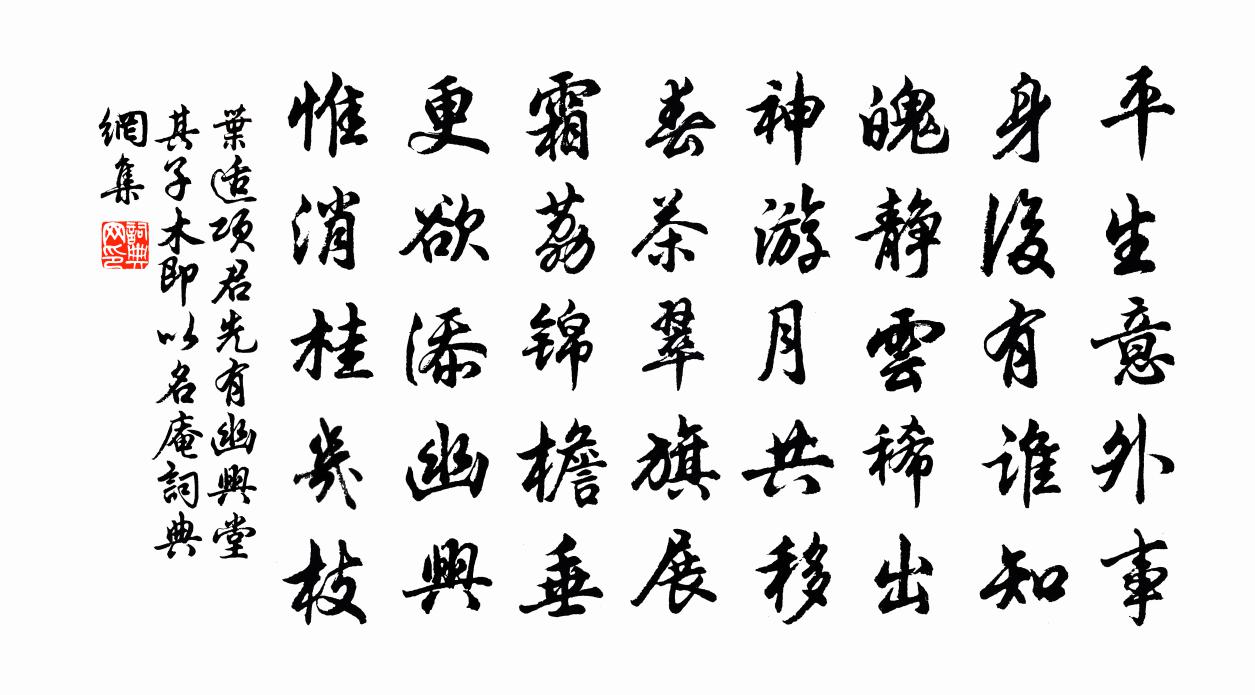 平生意外事
身後有誰知
魄靜雲稀出
神游月共移
春茶翠旗展
霜荔锦檐垂
更欲添幽興
惟消桂幾枝
葉适項君先有幽興堂
其子木即以名庵詞典
網集
詞典网印